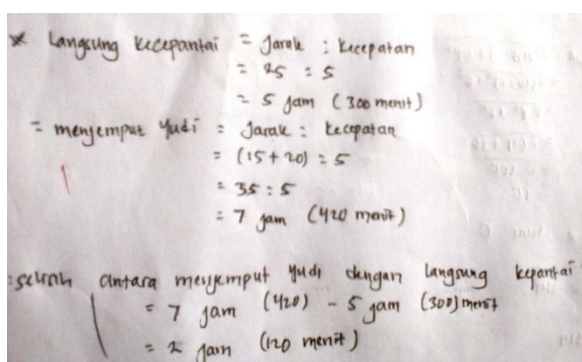 * Langsung kecepantai = Jarak : kecepatan
= 25 : 5
= 5 jam (300 menit)
= menjemput yudi = Jarak : kecepatan
= (15 + 20) : 5
= 35 : 5
= 7 jam (420 menit)
: selisih antara menjemput yudi dengan langsung kepantai
= 7 jam (420) - 5 jam (300) menit
= 2 jam (120 menit)